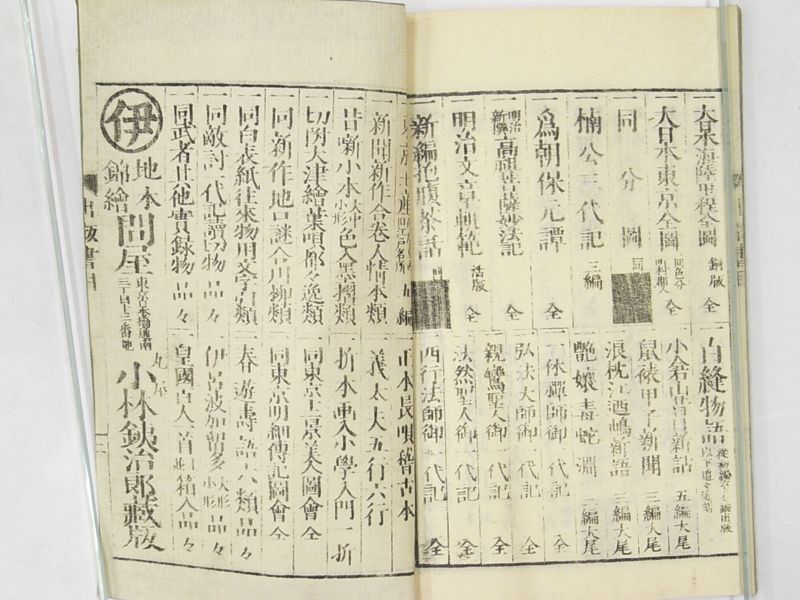 一大日本海陸里程全圖 銅版 全
一大日本東京全圖 同色分 全
一同分圖
一楠公三代記 三編
一爲朝保元譚 全
明治新撰 高祖菩薩妙法記 全
一明治文章軌範 活版 全
一新編抱腹茶話
一白縫物語
一小倉山青樹新話 五編大尾
一鼠裱甲子新聞 三編大尾
一浪枕江の嶋新語 三編大尾
一艶孃毒蛇淵 三編大尾
一一休禪師御一代記 全
一弘法大師御一代記 全
一親鸞聖人御一代記 全
一法然聖人御一代記 全
一西行法師御一代記 全
東京土産 五編
一新聞新作合巻人情本類
一昔噺小本 大中小形 色入墨摺類
一切附大津繪葉唄都々逸類
一同新作地口謎合川柳類
一同白表紙往來物用文學者類
一同敵討一代記讀切物 品々
一同武者其他實録物 品々
一正本長唄稽古本
一義太夫五行六行
一折本畫入小學入門 一折
一同東京土京美人圖會 全
一同東京明細傳記圖會 全
一春遊壽語六類 品々
一伊呂波加留多 大形小形 品々
一皇國百人一首并箱入品々
伊 地本錦繪 問屋 東京日本橋通南三丁目十二番地 丸屋 小林鉄治郎藏版
出版書目